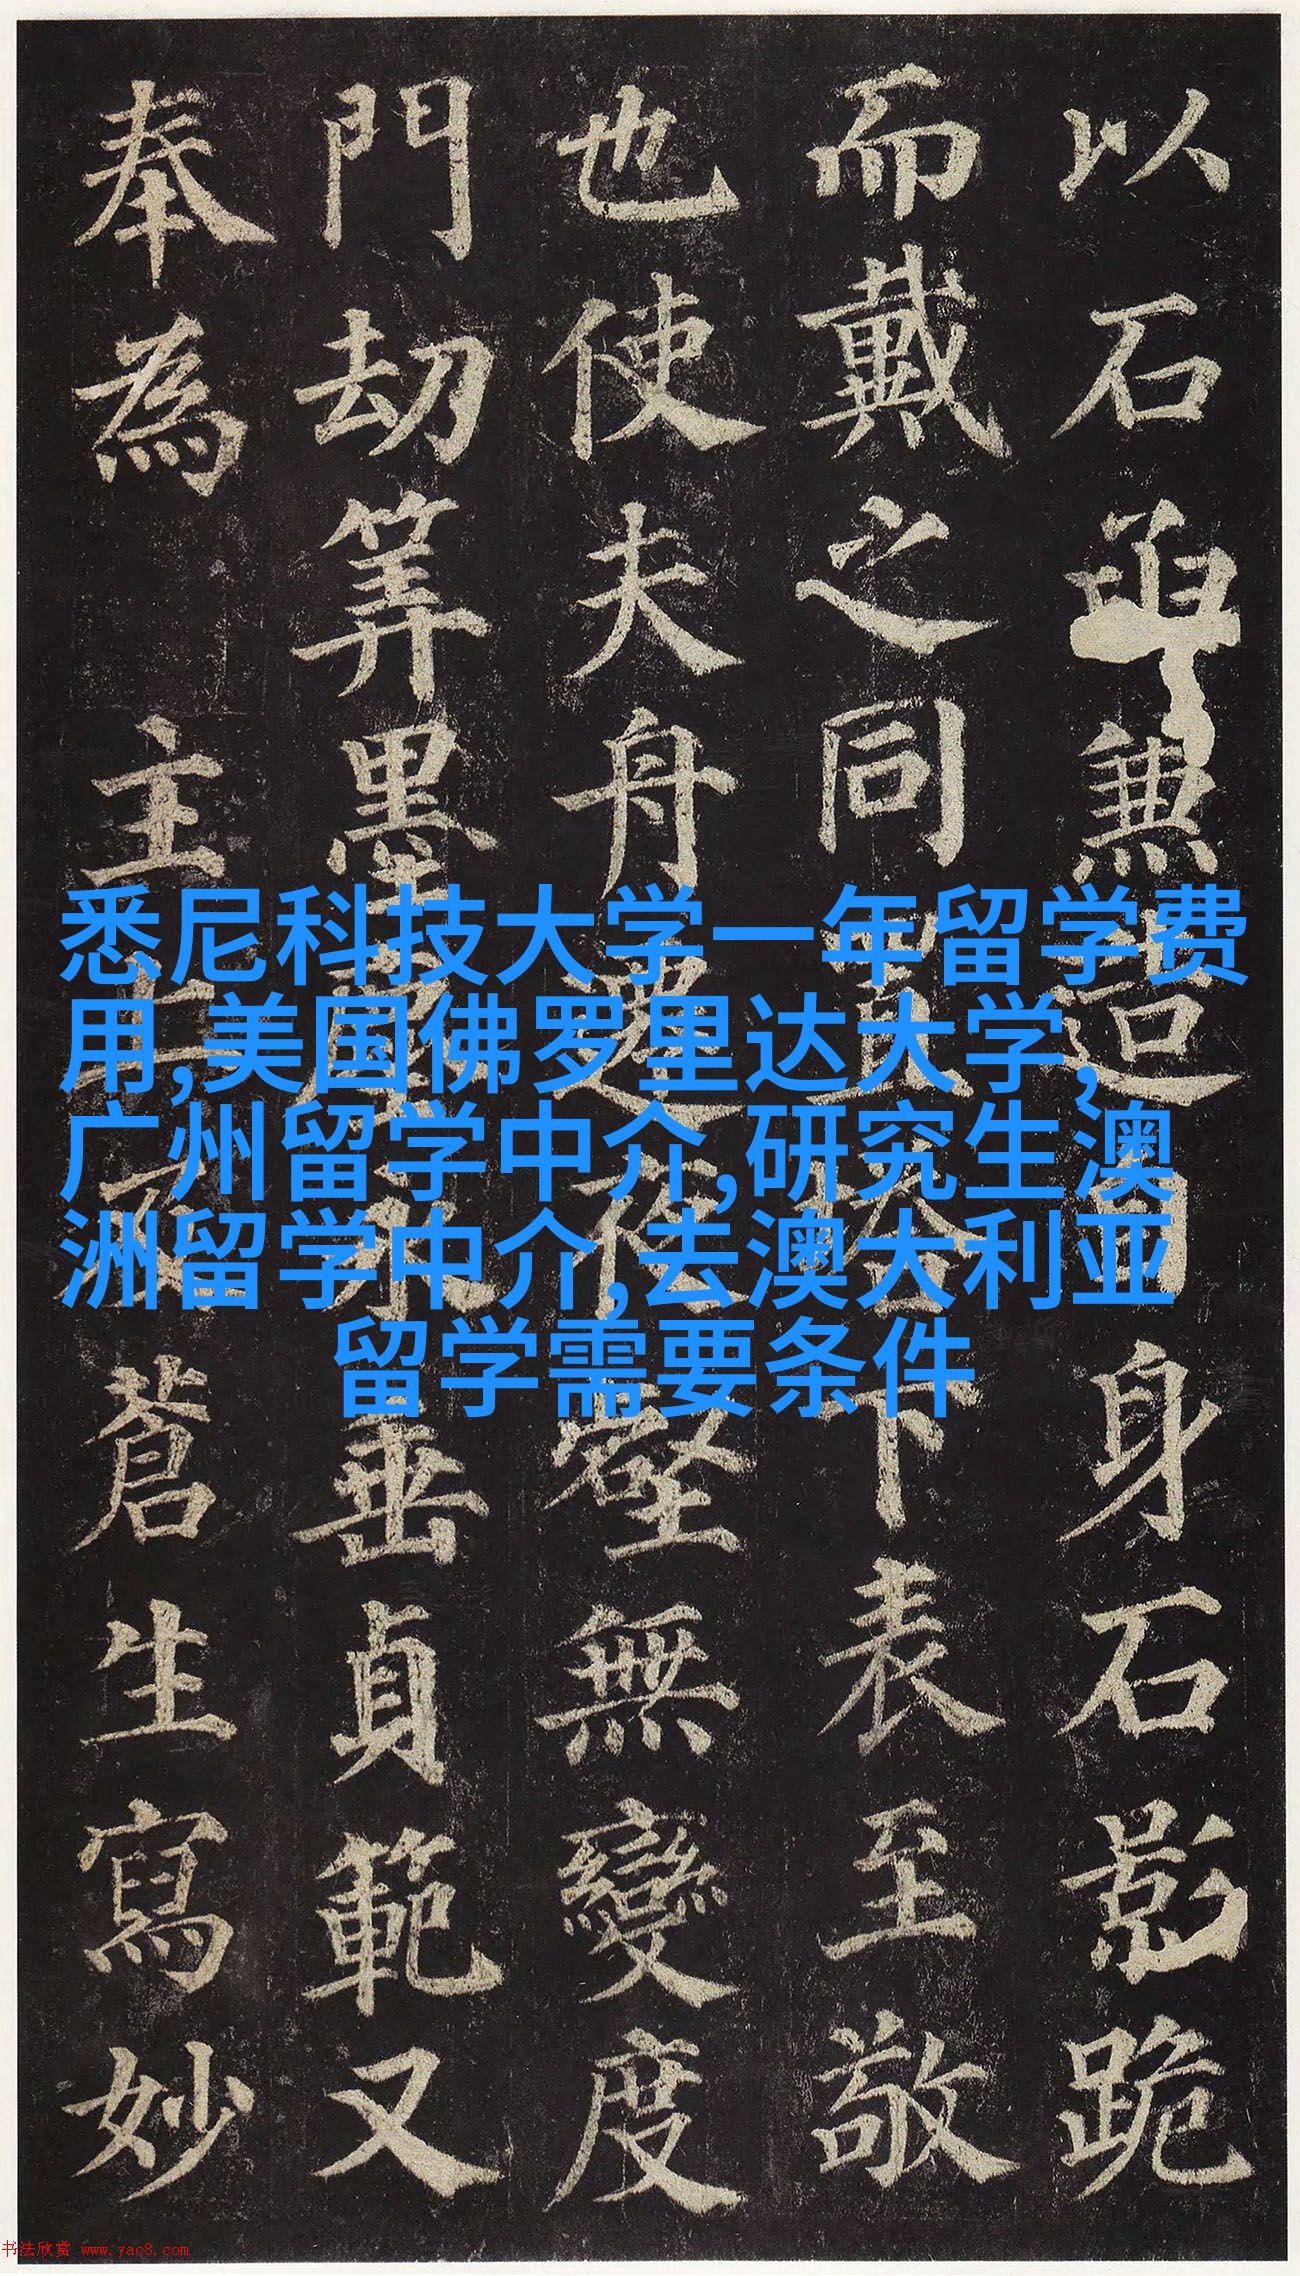 以石兼造自身石影跪
而戴之同置塔下表至敬
也使夫舟遷夜壑無變度
門劫筭墨永垂貞範又
奉為主上蒼生寫妙
悉尼科技大学一年留学费
用,美国佛罗里达大学,
广州留学中介,研究生澳
洲留学中介,去澳大利亚
留学需要条件
书法欣赏 www.yac8.com